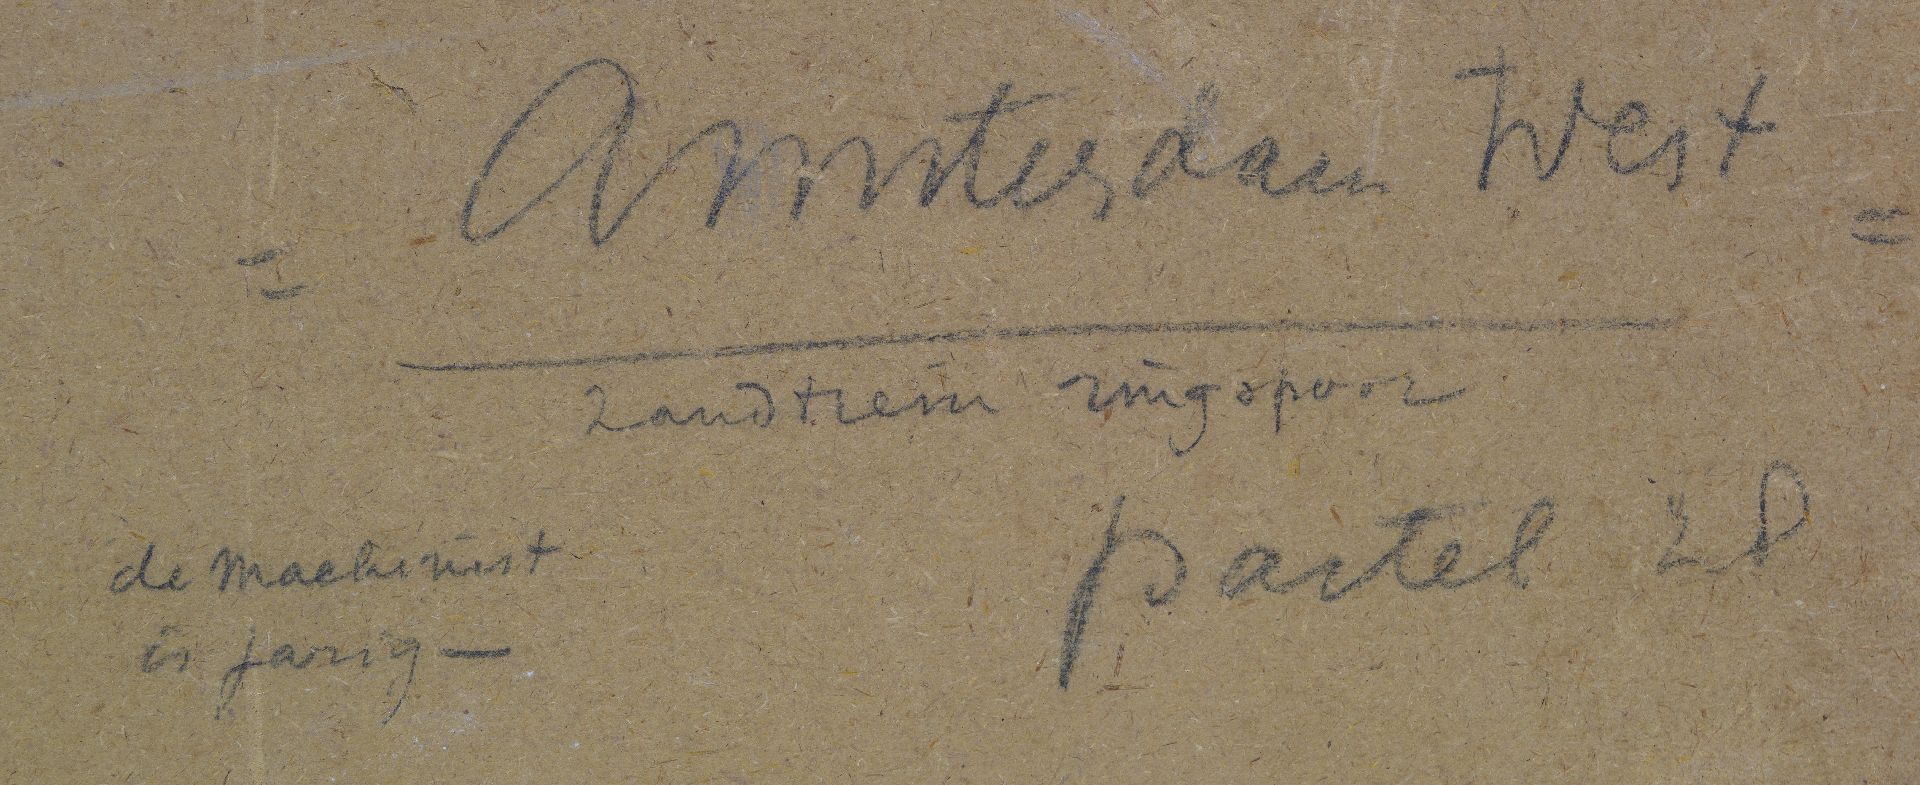 = Amsterdam West =
zandtrein ringspoor
pastel 28
de Machinist
is jarig —